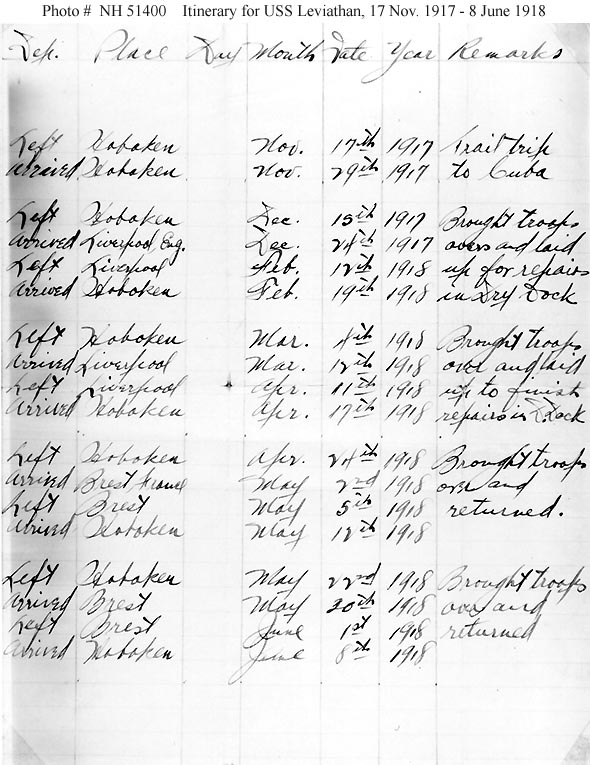 Photo # NH 51400 Itinerary for USS Leviathan, 17 Nov. 1917 - 8 June 1918
Dep. Place Day Month Date Year Remarks
Left Hoboken Nov. 17th 1917 Trail trip
Arrived Hoboken Nov. 29th 1917 to Cuba
Left Hoboken Dec. 15th 1917 Brought troops
Arrived Liverpool, Eng. Dec. 24th 1917 over and laid
Left Liverpool Feb. 12th 1918 up for repairs
Arrived Hoboken Feb. 19th 1918 in Dry Dock
Left Hoboken Mar. 4th 1918 Brought troops
Arrived Liverpool Mar. 12th 1918 over and laid
Left Liverpool Apr. 11th 1918 up to finish
Arrived Hoboken Apr. 17th 1918 repairs in Dock
Left Hoboken Apr. 24th 1918 Brought troops
Arrived Brest France May 2nd 1918 over and
Left Brest May 5th 1918 returned.
Arrived Hoboken May 12th 1918
Left Hoboken May 22nd 1918 Brought troops
Arrived Brest May 30th 1918 over and
Left Brest June 1st 1918 returned
Arrived Hoboken June 8th 1918